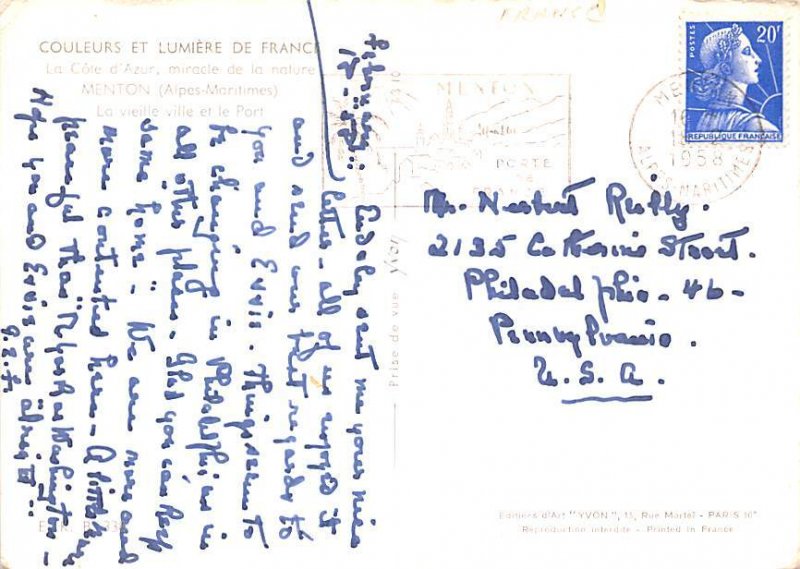 FRANCE
COULEURS ET LUMIÈRE DE FRANCE
La Côte d'Azur, miracle de la nature
MENTON (Alpes-Maritimes)
La vieille ville et le Port
sent me your nice
letter - all of us enjoyed it
and send our best regards to
you and Things seem to
be changing in Philadelphia as in
all other places - Glad you can keep
same home - We are more and
more contented here - A little more
peaceful than New York or Washington -
Hope you and are
Prise de vue yvon
MENTON
PORTE
DE
FRANCE
1958
ALPES-MARITIMES
POSTES
20F
REPUBLIQUE FRANÇAISE
Mr. Reilly.
2135 Catherine Street.
Philadelphia - 46 -
Pennsylvania.
U.S.A.
Editions d'Art "YVON", 15, Rue Martel - PARIS 10e
Reproduction interdite - Printed in France